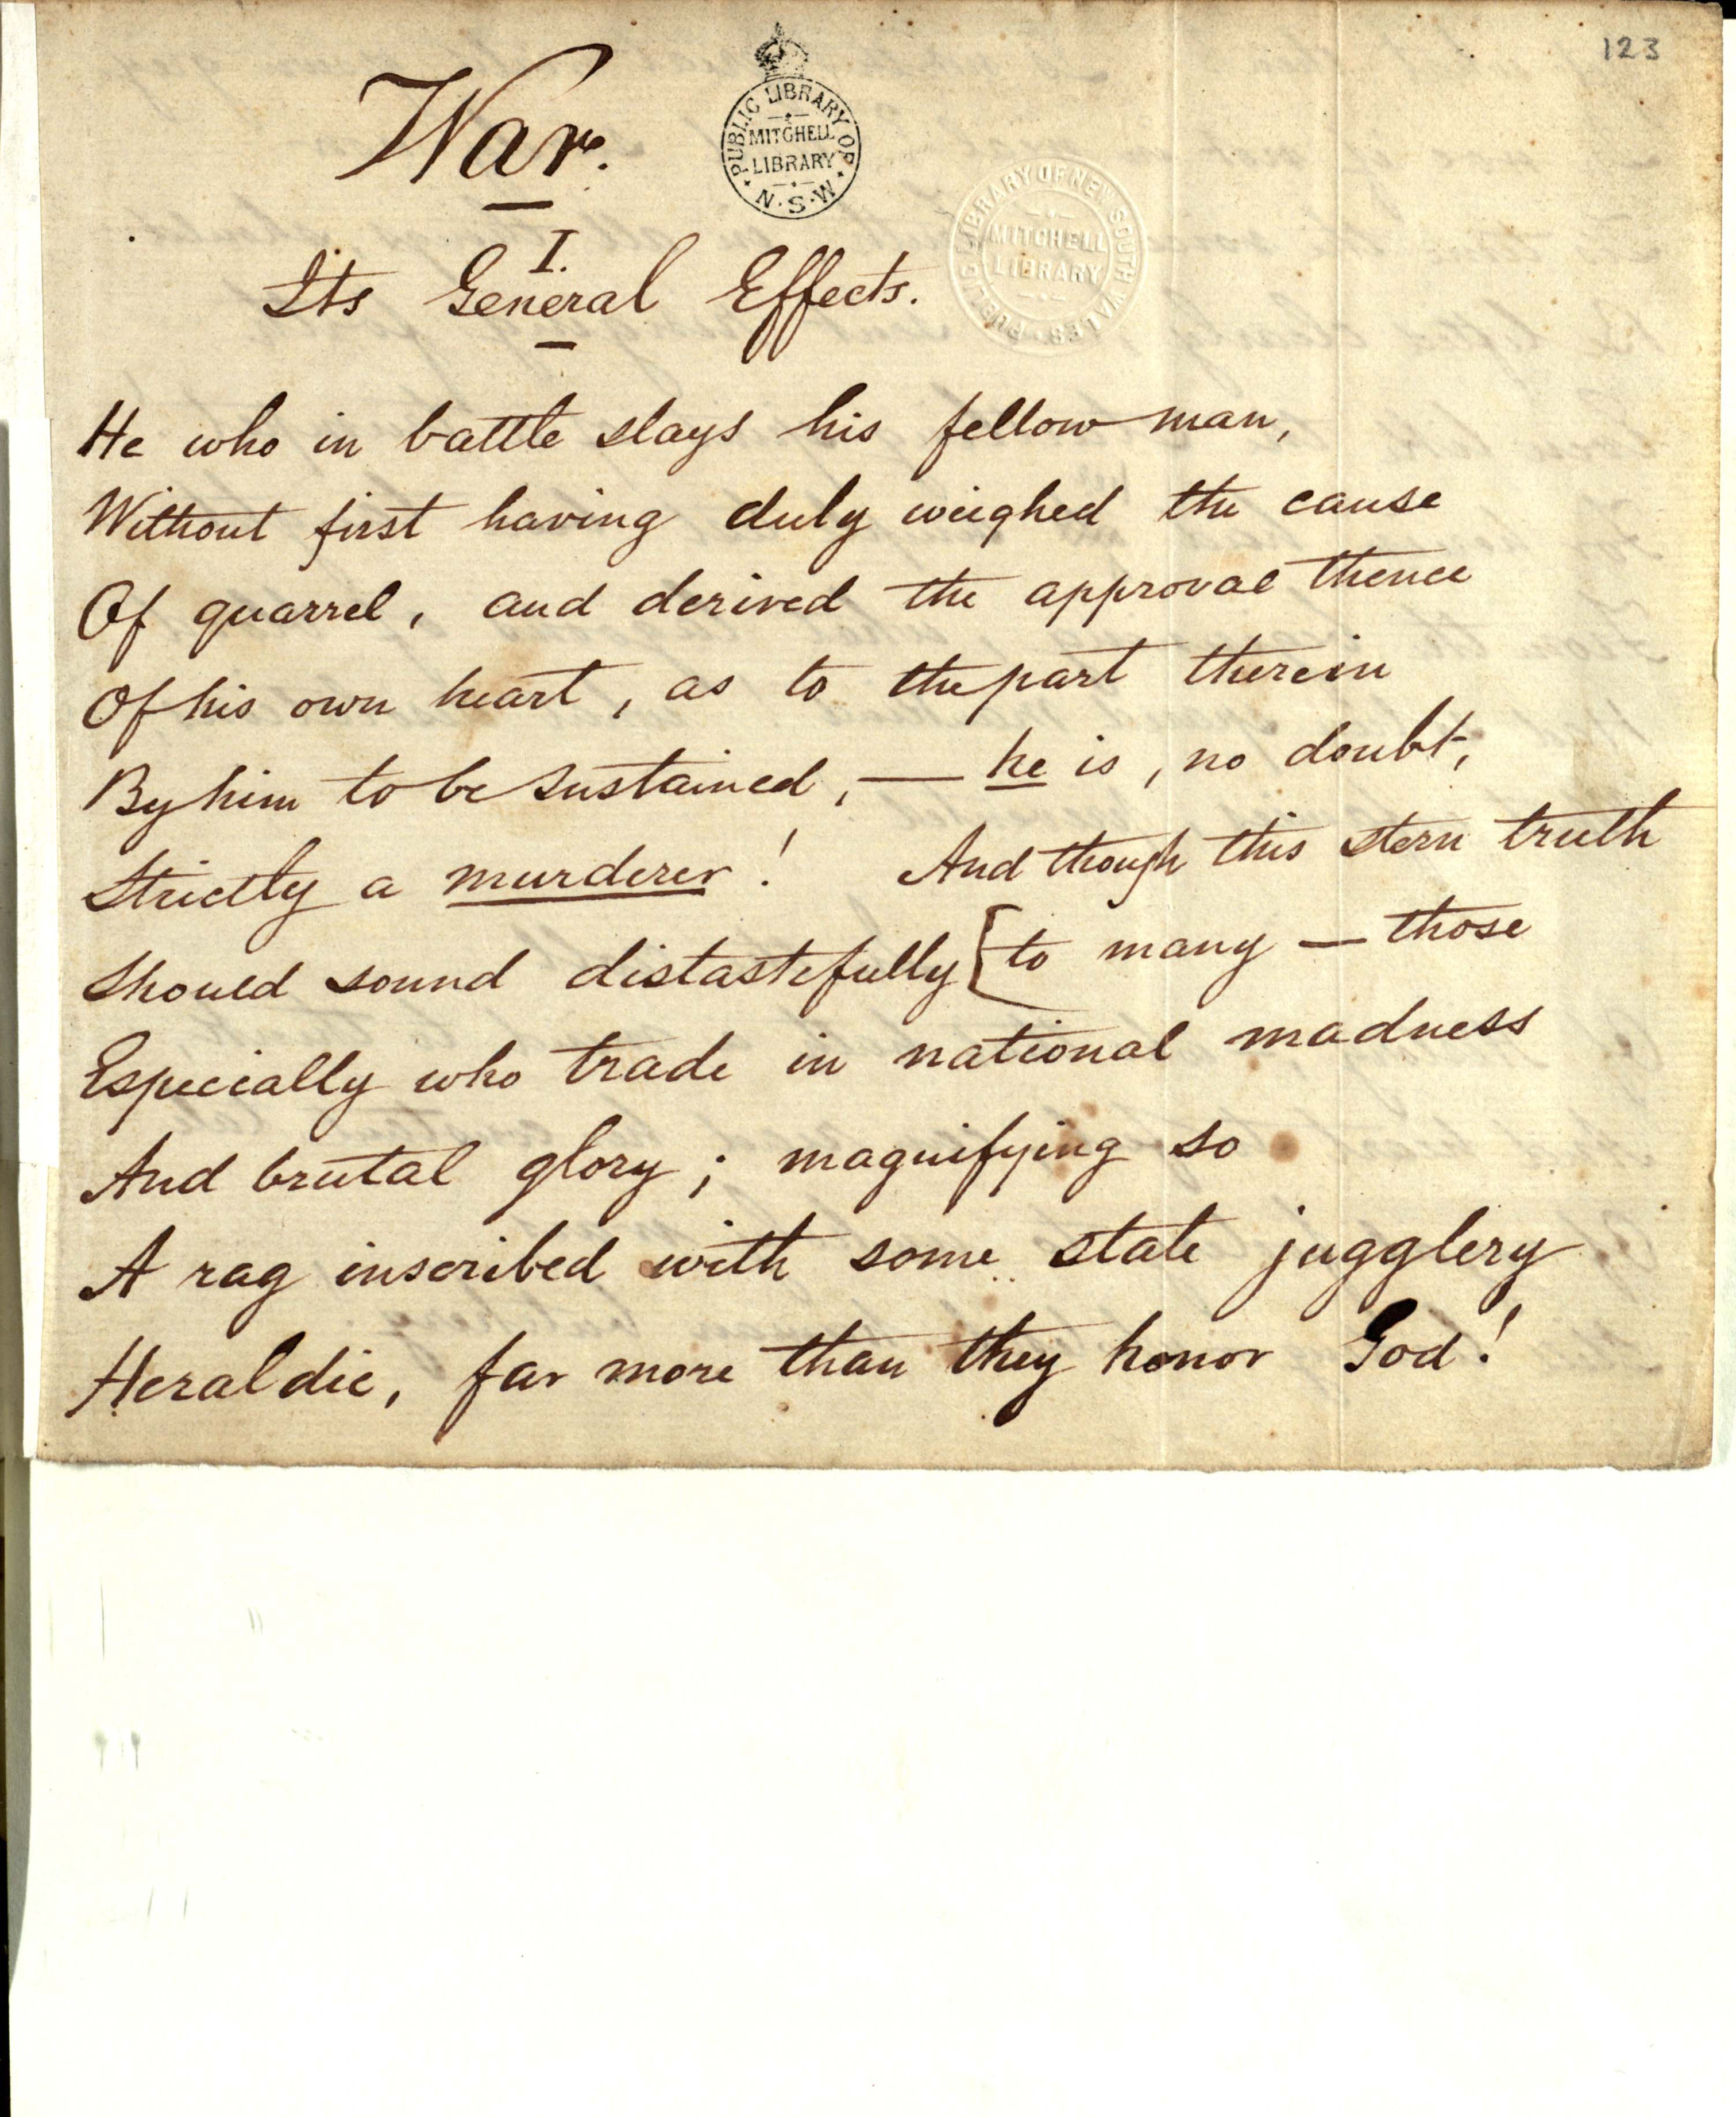 123
War.
PUBLIC LIBRARY OF N.S.W
MITCHELL
LIBRARY
PUBLIC LIBRARY OF NEW SOUTH WALES
MITCHELL
LIBRARY
I.
Its General Effects.
He who in battle slays his fellow man,
Without first having duly weighed the cause
Of quarrel, and derived the approval thence
Of his own heart, as to the part therein
By him to be sustained, — he is, no doubt,
Strictly a murderer! And though this stern truth
Should sound distastefully [to many — those
Especially who trade in national madness
And brutal glory; magnifying so
A rag inscribed with some state jugglery
Heraldic, far more than they honor God!